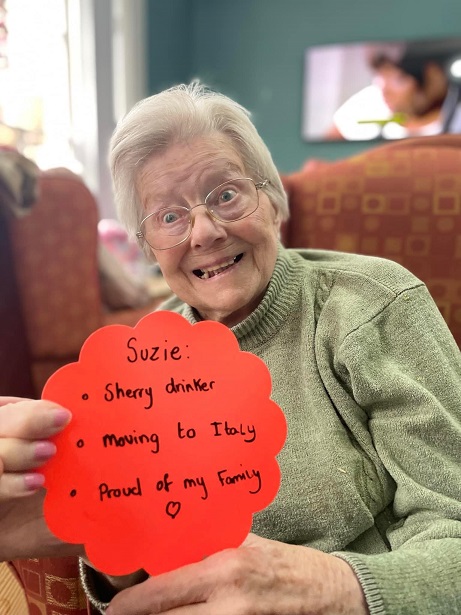 Suzie:
• Sherry drinker
• moving to Italy
• Proud of my Family
♡